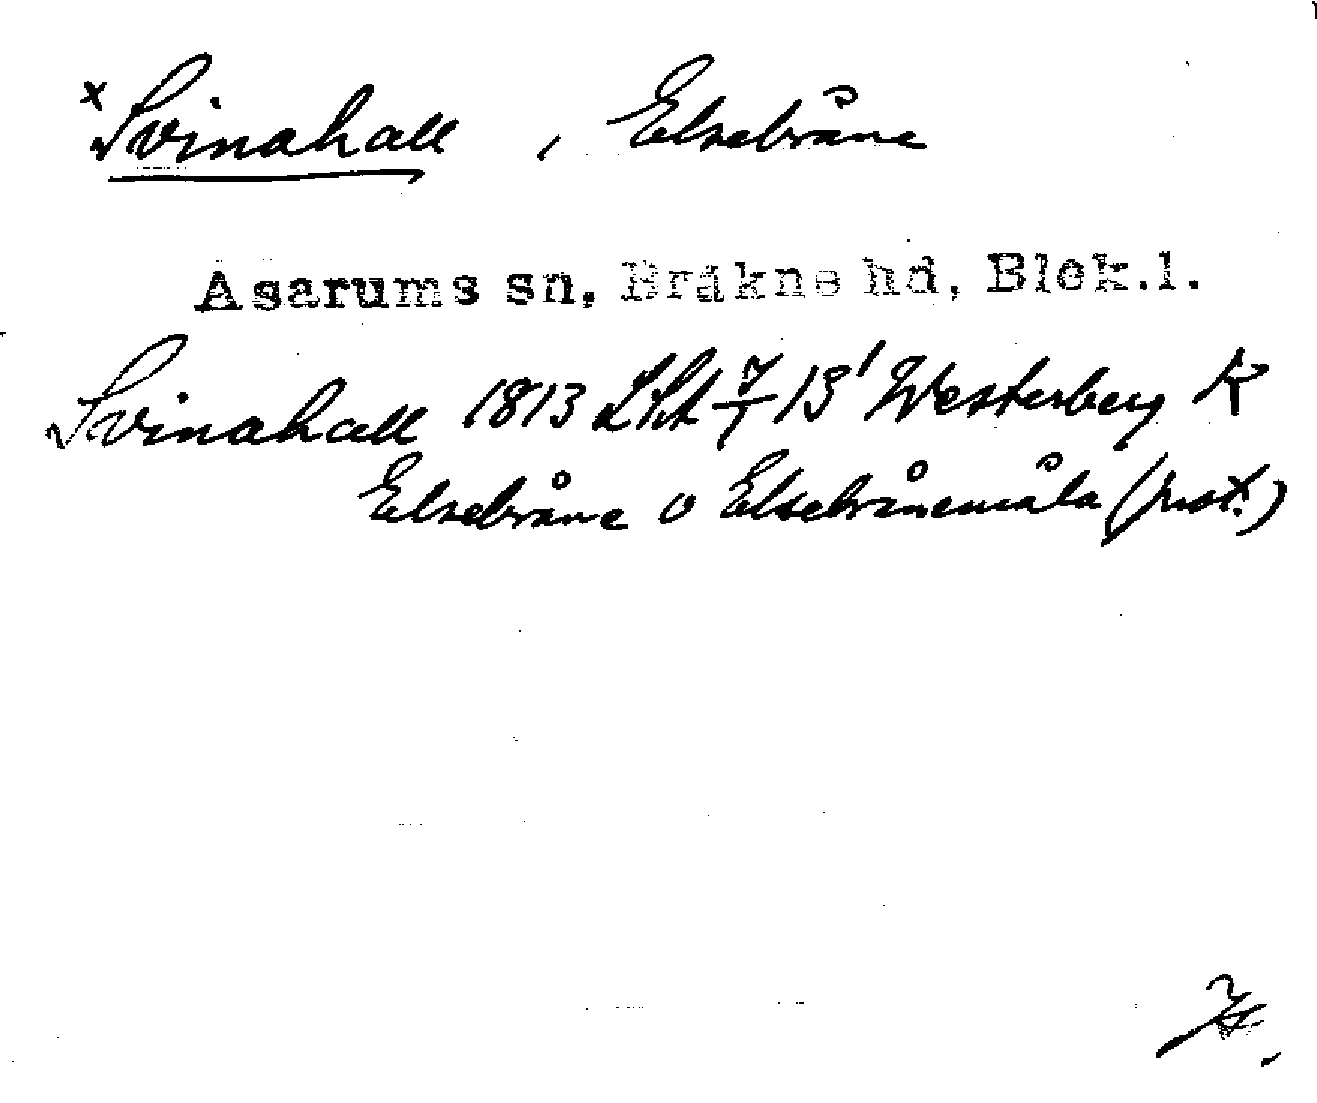 x Svinahall, Elsebråne
Asarums sn, Bräkne hd, Blek.l.
Svinahall 1813 LSA 7/1 13' Westerberg K
Elsebråne o Elsebrånemåla (prot.)